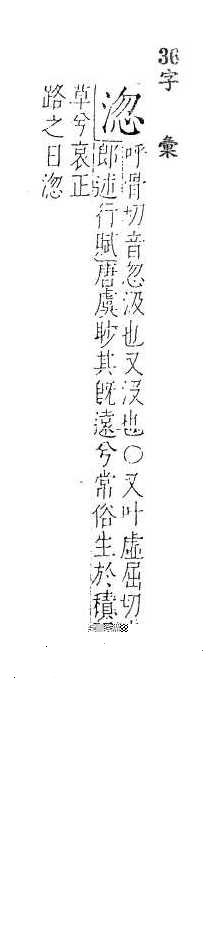 36字彙
淴
呼骨切音忽汲也又沒也〇又叶虛屈切
郎述行賦唐虞眇其既遠兮常俗生於積
草兮哀正
路之日淴